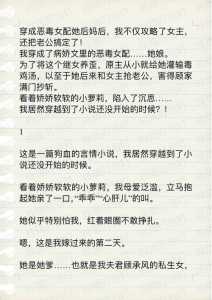 穿成恶毒女配她后妈后,我不仅攻略了女主,
还把老公搞定了!
我穿成了病娇文里的恶毒女配……她娘。
为了将这个继女养歪,原主从小就给她灌输毒
鸡汤,以至于她后来和女主抢老公,害得顾家
满门抄斩。
看着娇娇软软的小萝莉,陷入了沉思……
我居然穿越到了小说还没开始的时候?!
1
这是一篇狗血的言情小说,我居然穿越到了小
说还没开始的时候。
看着娇娇软软的小萝莉,我母爱泛滥,立马抱
起她亲了一口,“乖乖”“心肝儿”的叫。
她似乎特别怕我,红着眼圈不敢挣扎。
嗯,这是我嫁过来的第二天。
她是她爹……也就是我夫君顾承风的私生女,